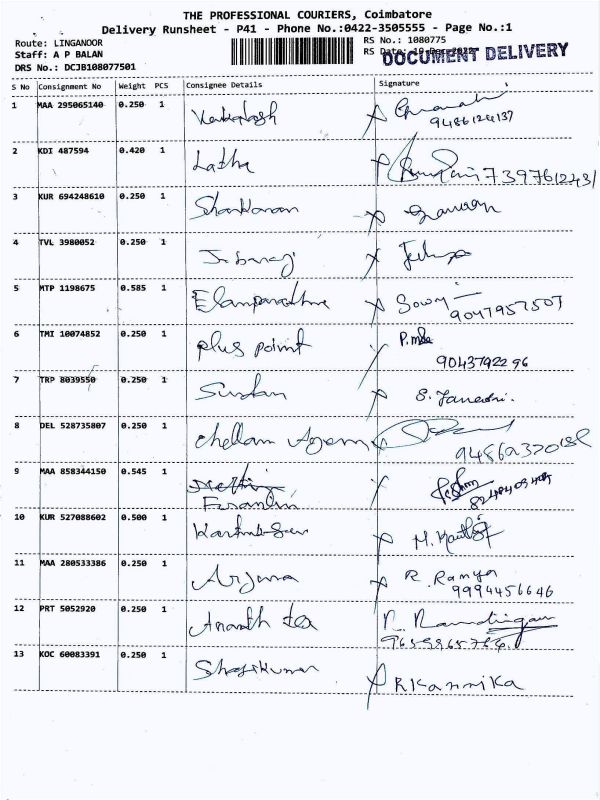 THE PROFESSIONAL COURIERS, Coimbatore
Delivery Runsheet - P41 - Phone No.:0422-3505555 - Page No.:1
Route: LINGANOOR
RS No.: 1080775
Staff: A P BALAN
RS Date: 19-Dec-2022
DOCUMENT DELIVERY
DRS No.: DCJB108077501
S No Consignment No Weight PCS Consignee Details Signature
1 MAA 295065140 0.250 1 Venkatesh
9486124137
2 KDI 487594 0.420 1 Latha 7397612431
3 KUR 694248610 0.250 1
4 TVL 3980052 0.250 1 Jebaraj
5 MTP 1198675 0.585 1 Sowmi
9047957507
6 TMI 10074852 0.250 1 plus point
9043792296
7 TRP 8039550 0.250 1
8 DEL 528735807 0.250 1 Chellam Agency
9 MAA 858344150 0.545 1
10 KUR 527088602 0.500 1
11 MAA 280533386 0.250 1 Arjuna R. Ramya
9994456646
12 PRT 5052920 0.250 1 Ananth tea
13 KOC 60083391 0.250 1 Shajikumar R Kannika